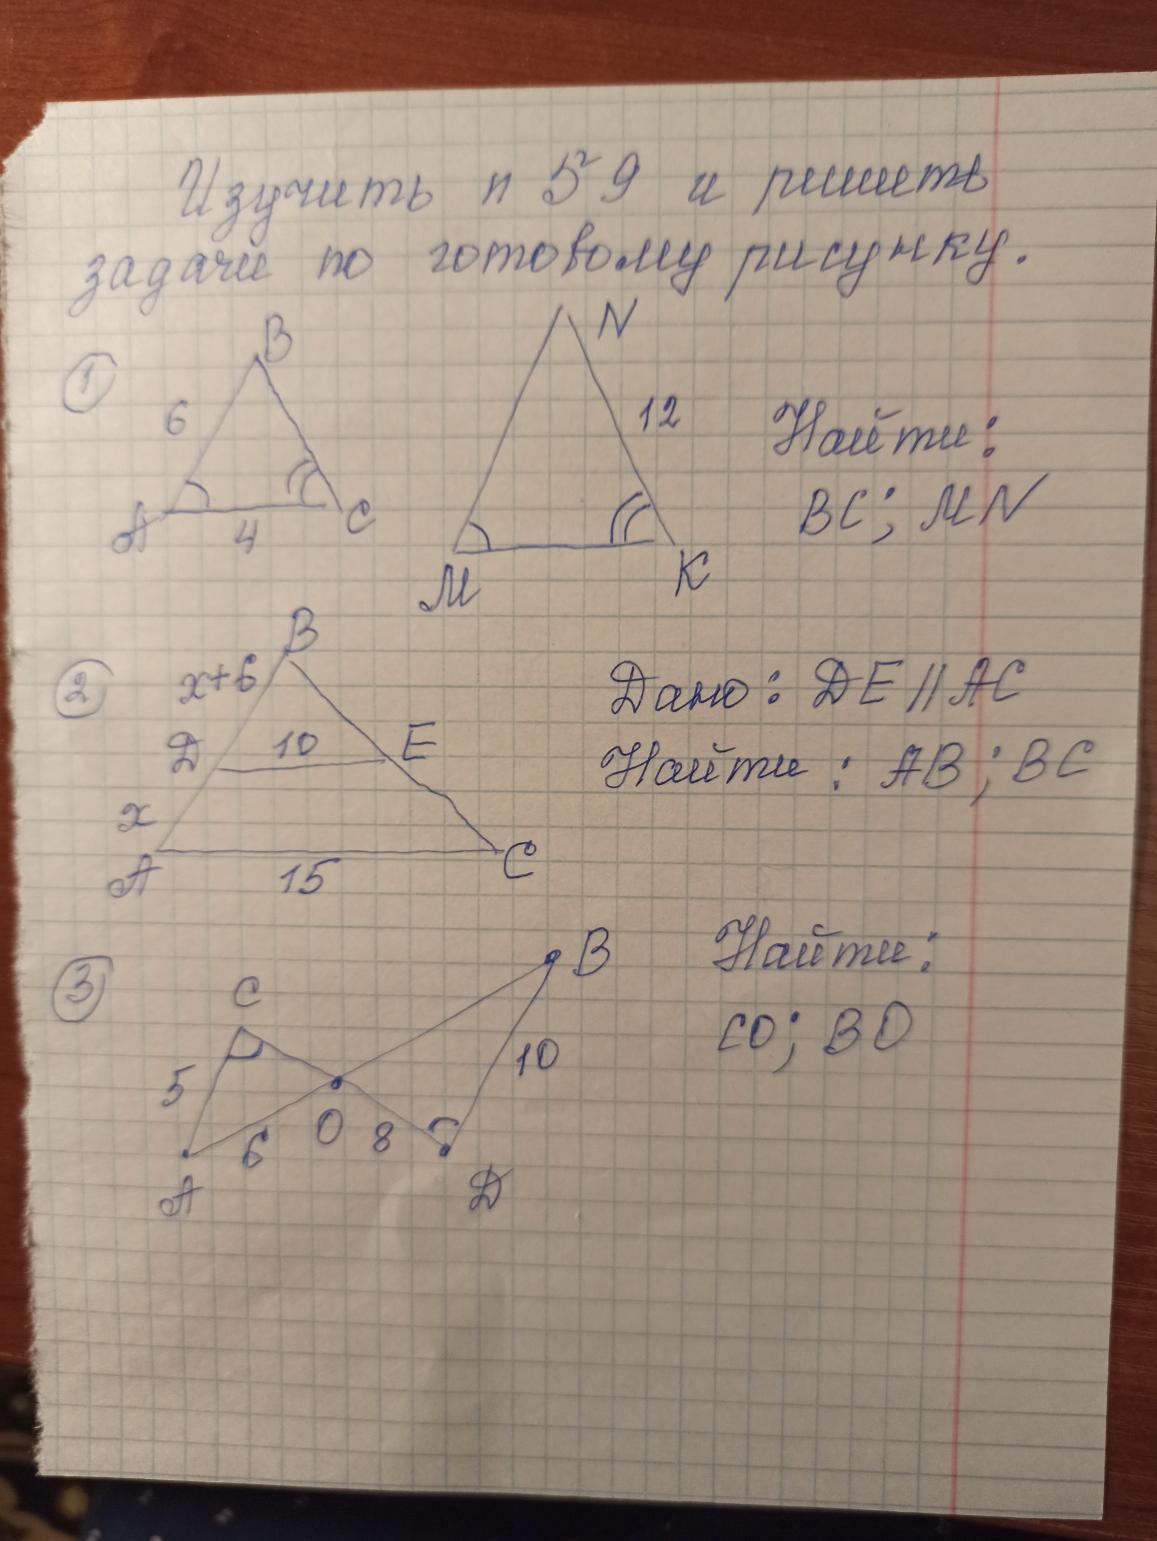 Изучить п 59 и решить
задачи по готовому рисунку.
1
B
N
6
12
Найти:
BC; MN
A
4
C
M
K
2
B
x+6
Дано: DE || AC
D
10
E
Найти: AB; BC
x
A
15
C
3
B
Найти:
C
CO; BO
5
10
6
O
8
A
D